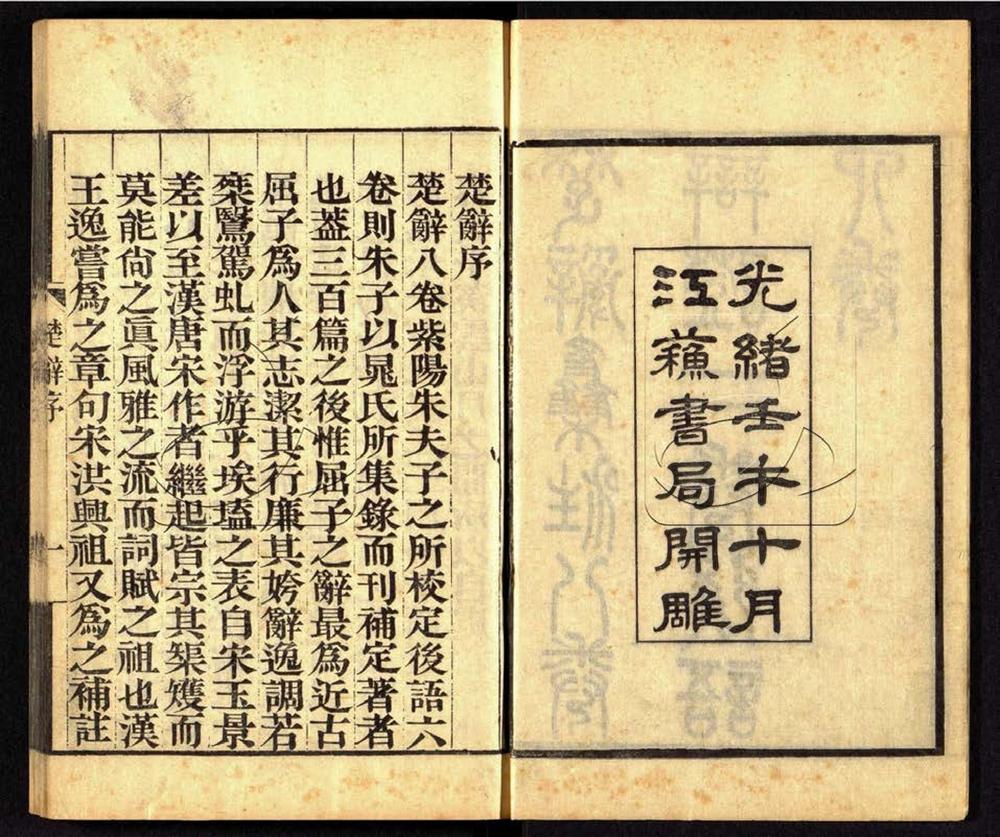 光緒壬午十月
江蘇書局開雕
楚辭序
楚辭八卷紫陽朱夫子之所校定後語六
卷則朱子以晁氏所集錄而刊補定著者
也葢三百篇之後惟屈子之辭最爲近古
屈子爲人其志潔其行廉其姱辭逸調若
椉鷖駕虬而浮游乎埃壒之表自宋玉景
差以至漢唐宋作者繼起皆宗其榘矱而
莫能尙之眞風雅之流而詞賦之祖也漢
王逸嘗爲之章句宋洪興祖又爲之補註
楚辭序
一